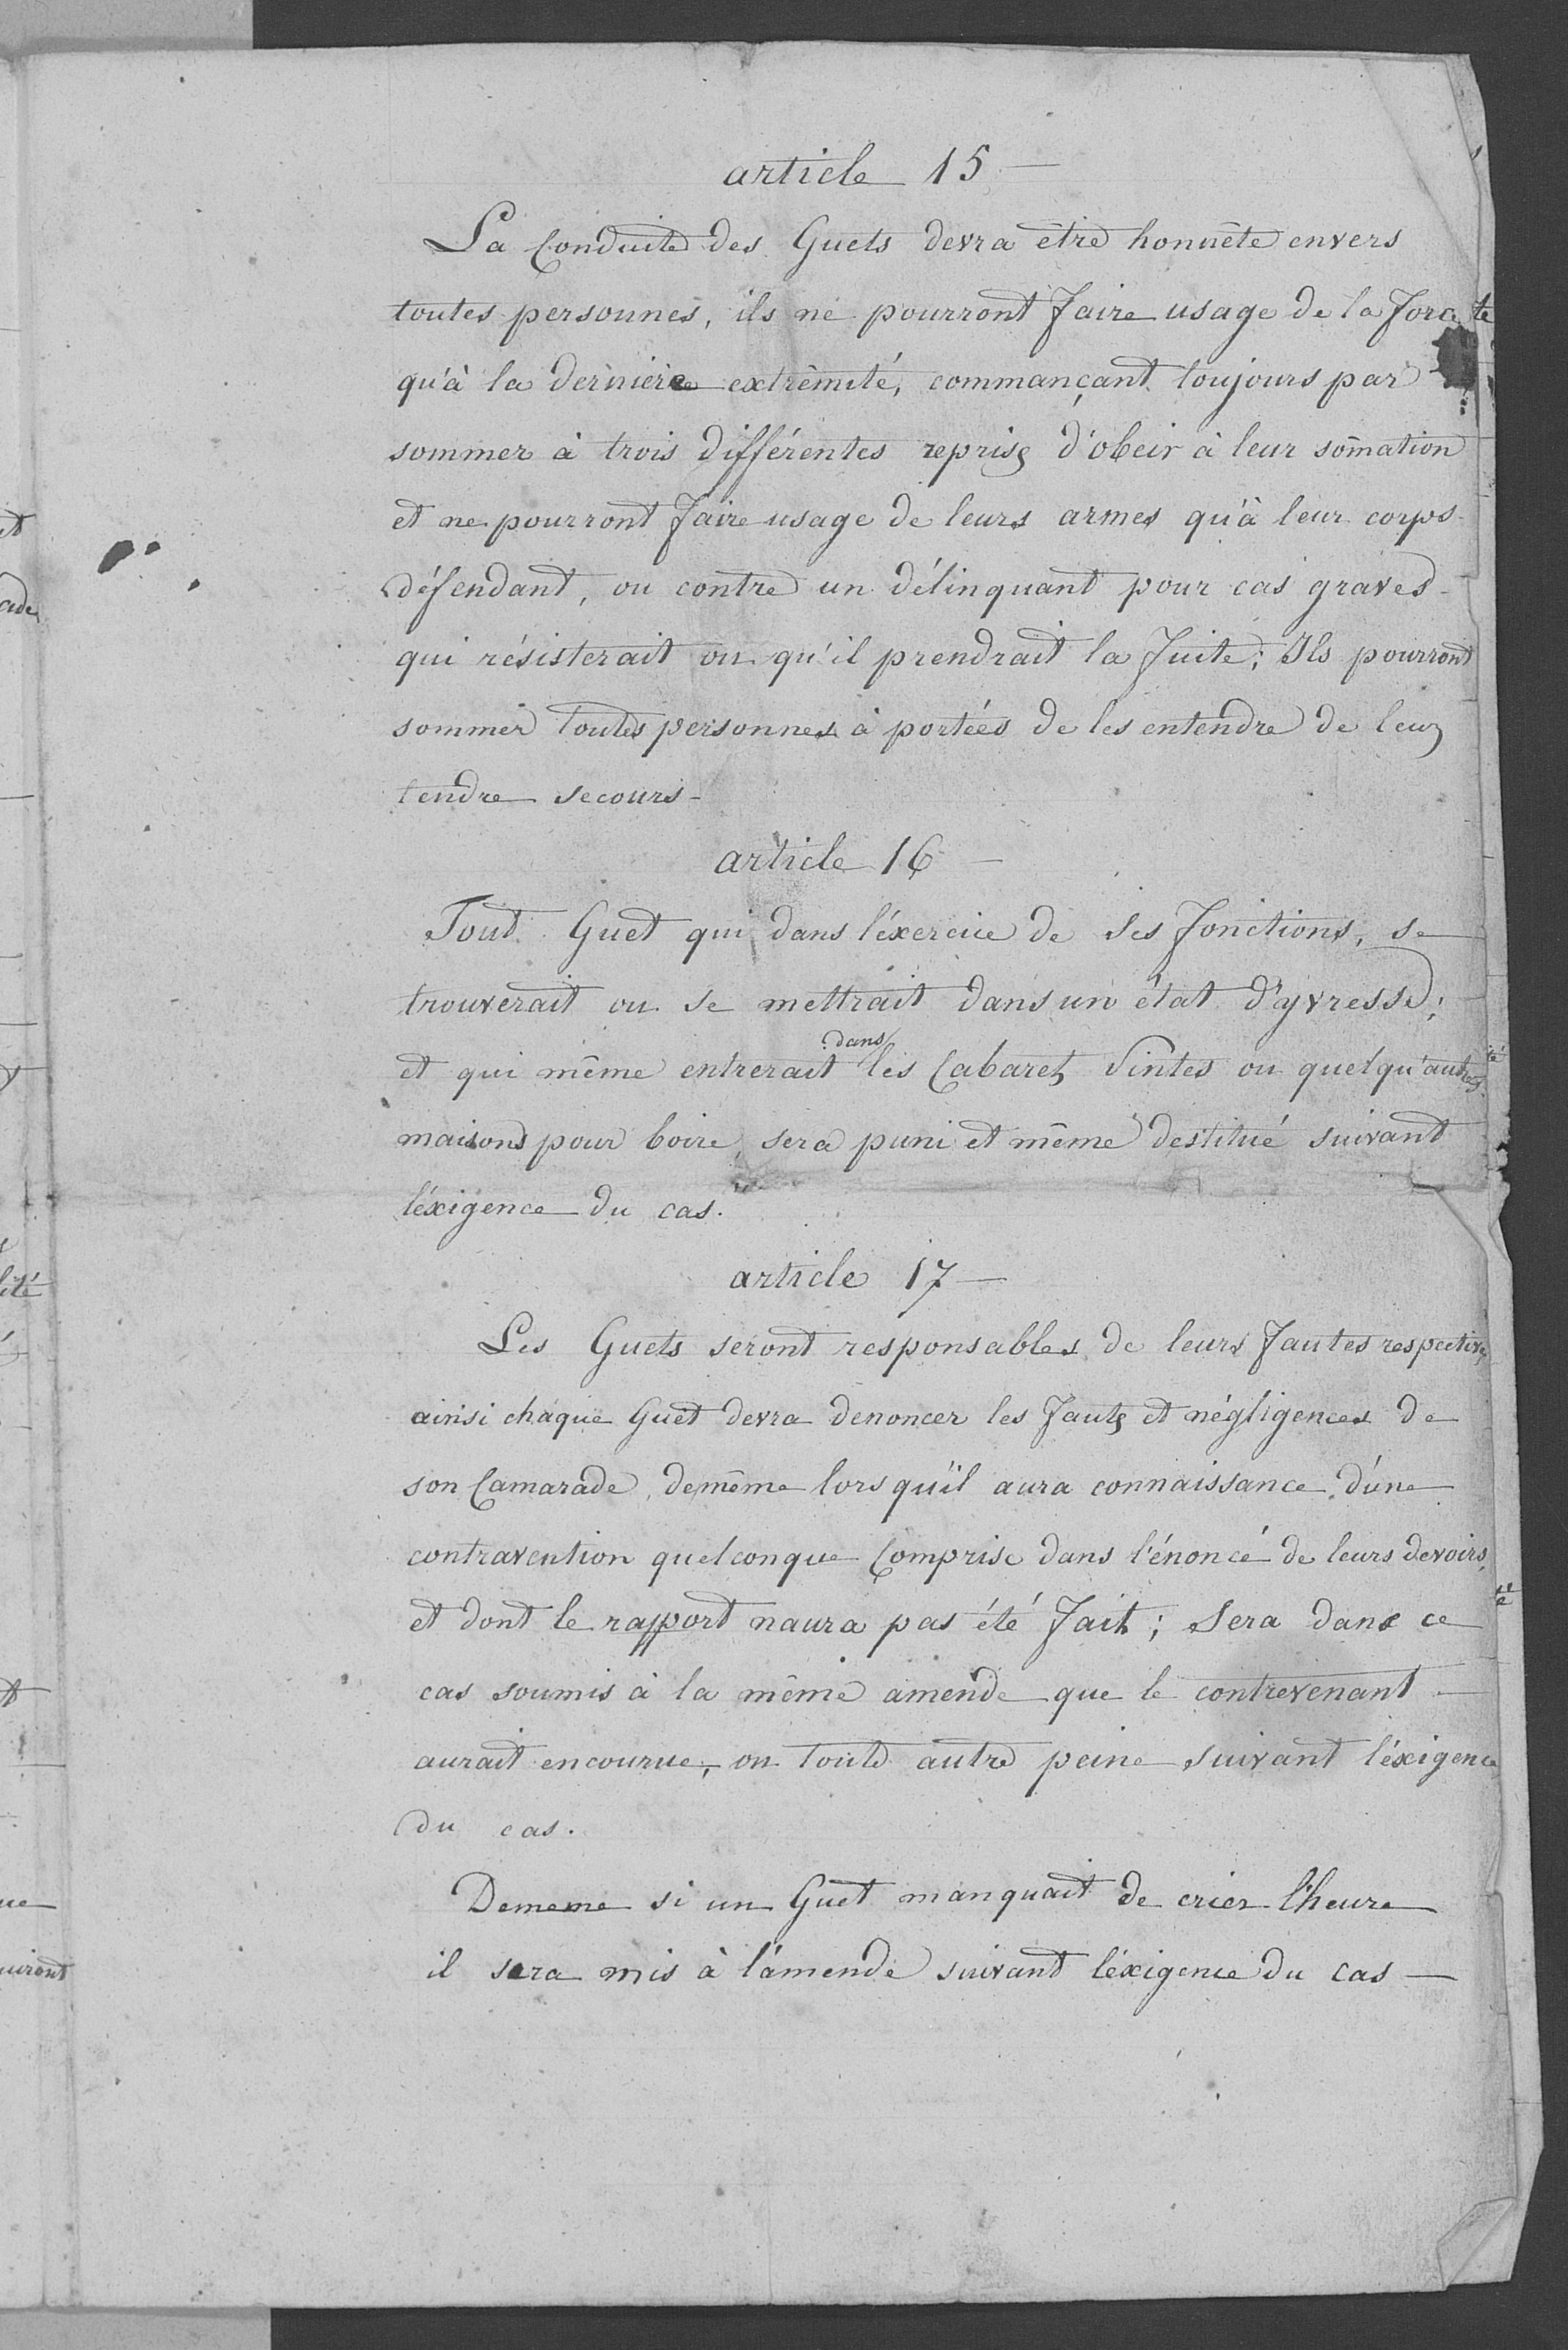 article 15 —
La Conduite des Guets devra être honnête envers
toutes personnes, ils ne pourront faire usage de la force
qu'à la dernière extrêmité, commançant toujours par
sommer à trois différentes reprises d'obeir à leur som̄ation
et ne pourront faire usage de leurs armes qu'à leur corps
défendant, ou contre un délinquant pour cas graves
qui résisterait ou qu'il prendrait la fuite; Ils pourront
sommer toutes personnes à portées de les entendre de leur
tendre secours -
article 16 —
Tout Guet qui dans l'éxercice de ses fonctions, se
trouverait ou se mettrait dans un état d'yvresse;
et qui même entrerait dans les Cabarets Pintes ou quelqu'autres
maisons pour boire, sera puni et même destitué suivant
l'éxigence du cas.
article 17 —
Les Guets seront responsables de leurs fautes respectives
ainsi chaque Guet devra denoncer les fautes et négligences de
son Camarade, demême lorsqu'il aura connaissance d'une
contravention quelconque Comprise dans l'énoncé de leurs devoirs,
et dont le rapport naura pas été fait; Sera dans ce
cas soumis à la même amende que le contrevenant
aurait encourue, ou toute autre peine suivant l'éxigence
du cas.
Dememe si un Guet manquait de crier l'heure
il sera mis à l'amende suivant l'éxigence du cas —